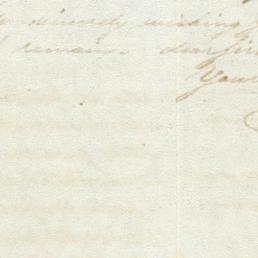 sincerely wishing
I remain. dear Sir
Your